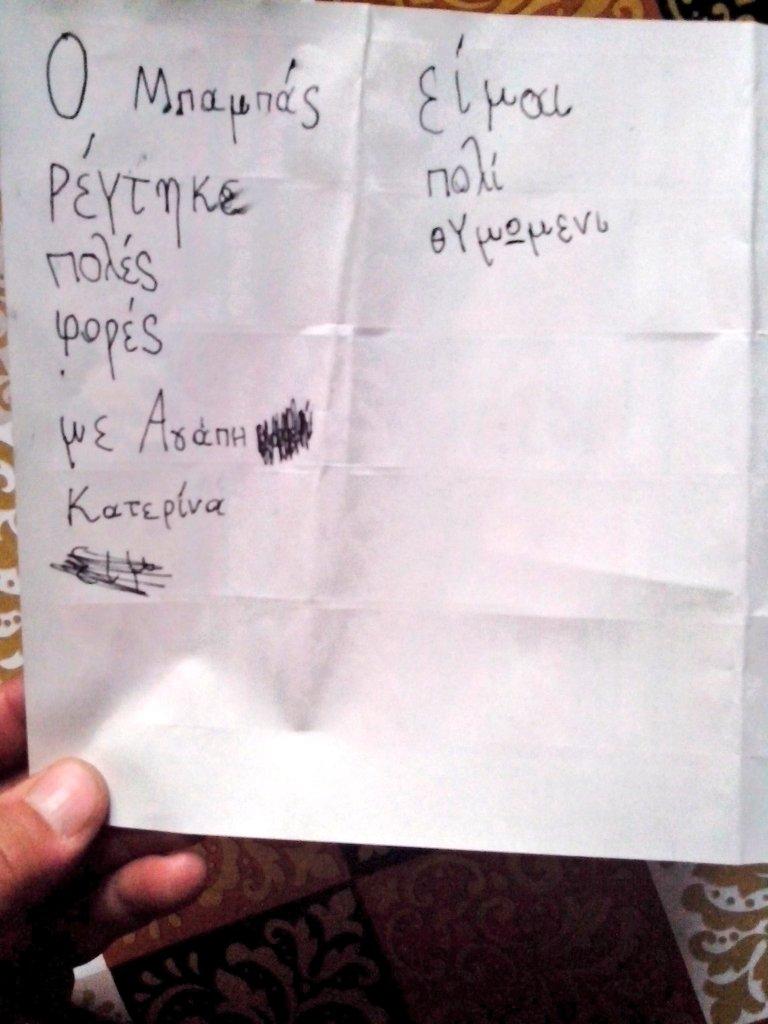 Ο Μπαμπάς
ρέγτηκε
πολές
φορές
με Αγάπη
Κατερίνα
είμαι
πολί
θγμωμενι